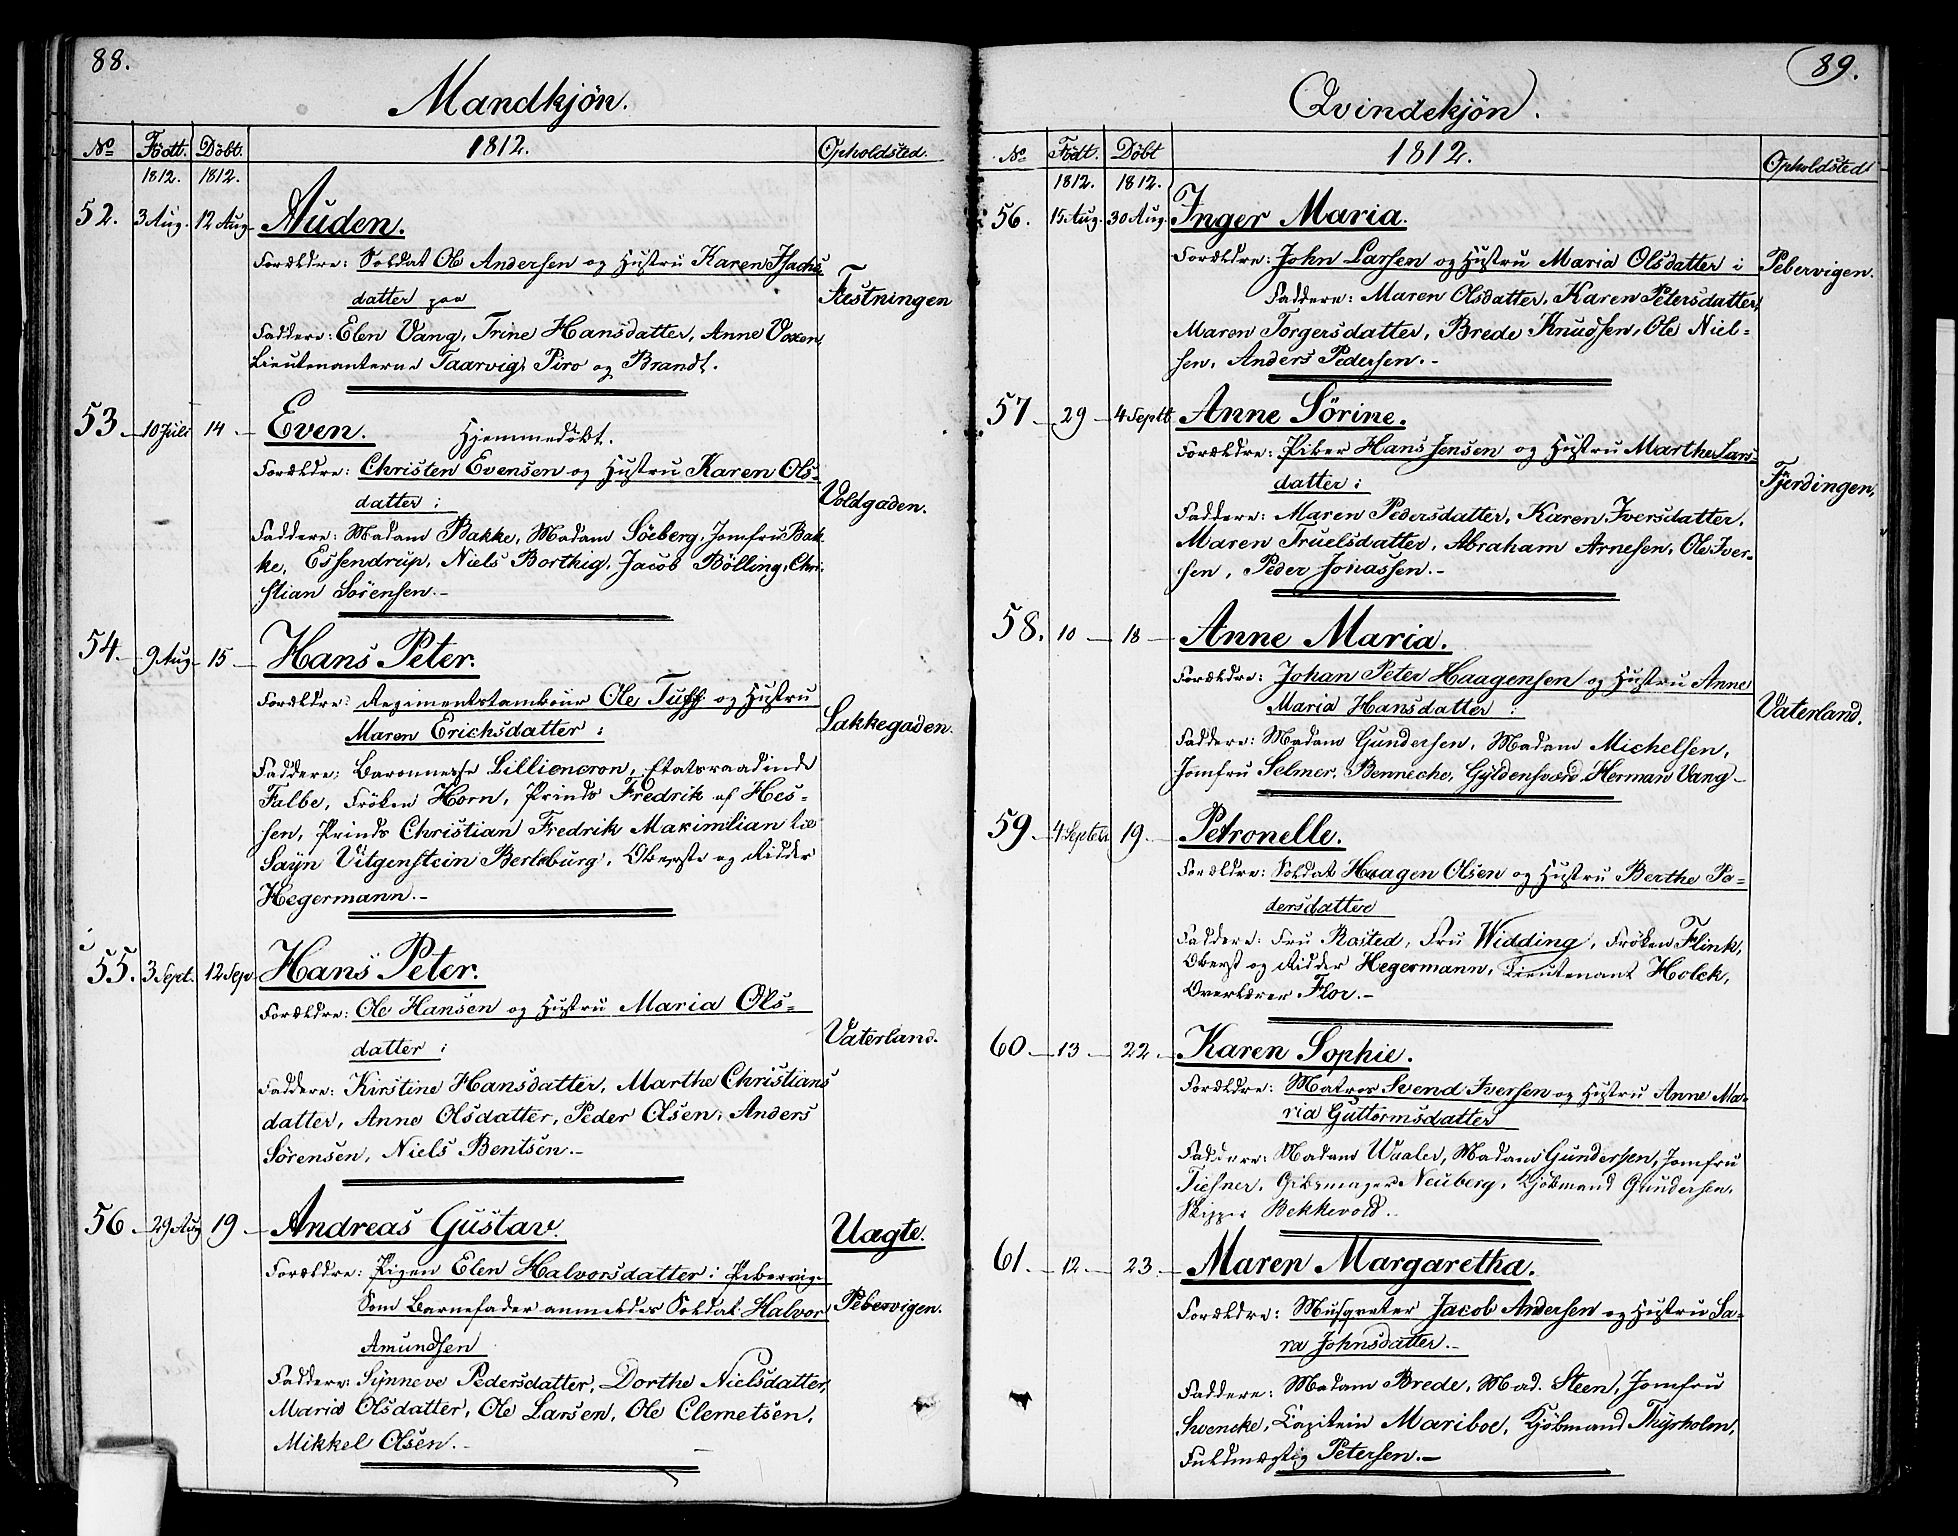 88.
Mandkjön.
No Födt. Döbt. 1812. Opholdsted.
1812. 1812.
52. 3 Aug. 12 Aug. Auden.
Forældre: Soldat Ole Andersen og Hustru Karen Isachs-
datter paa Festningen
Faddere: Elen Vang, Trine Hansdatter, Anne Voxen,
Lieutenanterne Taarvig, Piro og Brandt.
53. 10 Juli 14 Even. Hjemmedöbt.
Forældre: Christen Evensen og Hustru Karen Ols-
datter i Voldgaden.
Faddere: Madam Bakke, Madam Söeberg, Jomfru Bak-
ke, Essendrup, Niels Borthig, Jacob Bölling, Chri-
stian Sörensen.-
54. 9 Aug 15 Hans Peter.
Forældre: Regimentstambour Ole Tuff og Hustru
Maren Erichsdatter i Lakkegaden.
Faddere: Baronnesse Lilliencron, Etatsraadinde
Falbe, Fröken Horn, Prinds Fredrik af Hes-
sen, Prinds Christian Fredrik Maximilian til
Sayn Vitgenstein Berleburg, Oberste og Ridder
Hegermann.-
55. 3 Sept. 12 Sep. Hans Peter.
Forældre: Ole Hansen og Hustru Maria Ols-
datter i Vaterland.
Faddere: Kirstine Hansdatter, Marthe Christians
datter, Anne Olsdatter, Peder Olsen, Anders
Sörensen, Niels Bentsen.-
56 29 Aug 19 Andreas Gustav. Uægte.
Forældre: Pigen Elen Halvorsdatter i Pebervig.
Som Barnefader anmeldes Soldat Halvor Pebervigen.
Amundsen
Faddere: Synneve Pedersdatter, Dorthe Nielsdatter,
Maria Olsdatter, Ole Larsen, Ole Clemetsen,
Mikkel Olsen.-
89.
Qvindekjön.
No Födt. Döbt 1812. Opholdsted
1812. 1812.
56. 15 Aug. 30 Aug. Inger Maria.
Forældre: John Larsen og Hustru Maria Olsdatter i Pebervigen.
Faddere: Maren Olsdatter, Karen Petersdatter,
Maren Torgersdatter, Brede Knudsen, Ole Niel-
sen, Anders Pedersen.-
57 29 4 Septb Anne Sörine.
Forældre: Piber Hans Jensen og Hustru Marthe Lars-
datter i Fjerdingen.
Faddere: Maren Pedersdatter, Karen Iversdatter,
Maren Truelsdatter, Abraham Arnesen, Ole Iver-
sen, Peder Jonassen.-
58. 10 18 Anne Maria.
Forældre: Johan Peter Haagensen og Hustru Anne
Maria Hansdatter i Vaterland.
Faddere: Madam Gundersen, Madam Michelsen,
Jomfru Selmer, Benneche, Gyldensværd Herman Vang
59 4 Septebr 19. Petronelle.
Forældre: Soldat Haagen Olsen og Hustru Berthe Pe-
dersdatter
Faddere: Fru Rosted, Fru Widding, Fröken Flink,
Oberst og Ridder Hegermann, Lieutenant Holck,
Overlærer Flor.-
60 13 22 Karen Sophie.
Forældre: Matros Svend Iversen og Hustru Anne Ma-
ria Guttormsdatter
Faddere: Madam Waaler, Madam Gundersen, Jomfru
Tiesner, Gibsmager Neuberg, Kjöbmand Gundersen,
Skipper Bekkevold.
61. 12 23 Maren Margaretha.
Forældre: Musqveter Jacob Andersen og Hustru Sa-
ra Johnsdatter.-
Faddere: Madam Brede, Mad. Steen, Jomfru
Svencke, Capitein Mariboe, Kjöbmand Thyrholm,
Fuldmægtig Petersen.-